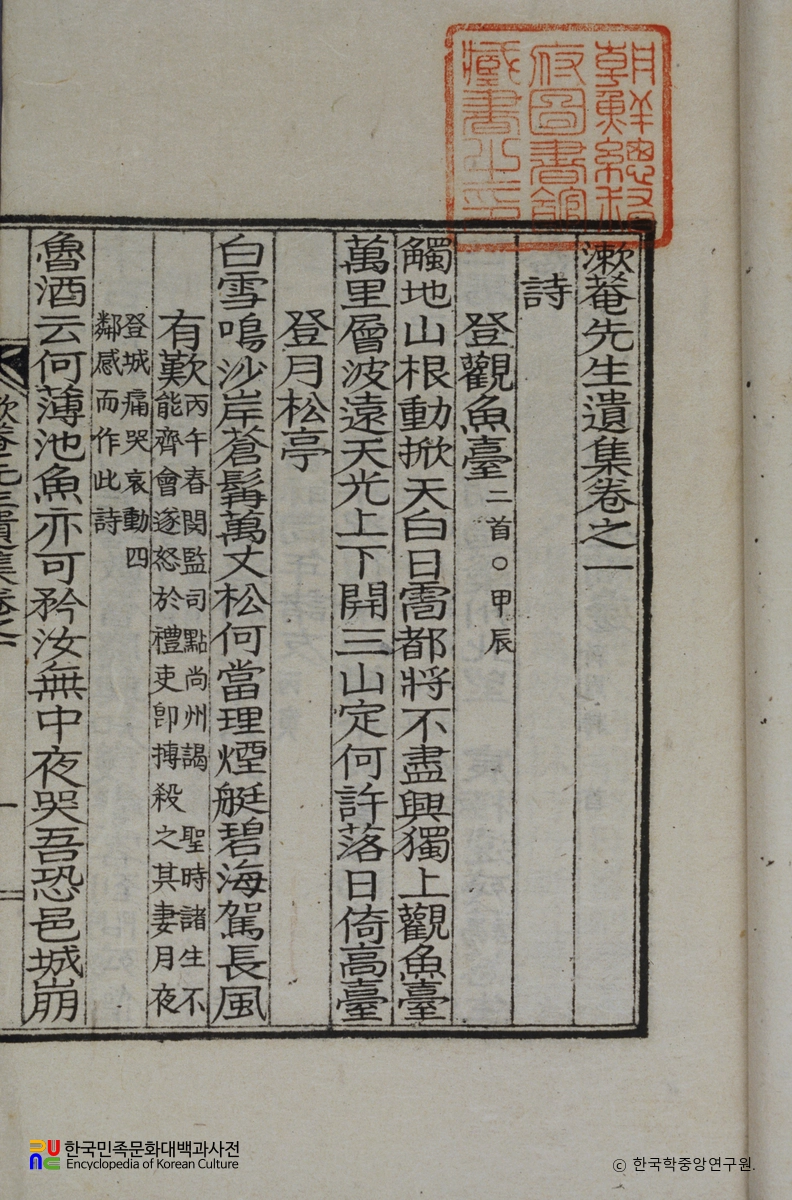 朝鮮總督
府圖書館
藏書之印
漱菴先生遺集卷之一
詩
登觀魚臺 二首○甲辰
觸地山根動掀天白日雷都將不盡興獨上觀魚臺
萬里層波遠天光上下開三山定何許落日倚高臺
登月松亭
白雪鳴沙岸蒼髯萬丈松何當理煙艇碧海駕長風
有歎 丙午春閔監司點尚州謁 聖時諸生不
能齊會遂怒於禮吏卽搏殺之其妻月夜
登城痛哭哀動四
鄰感而作此詩
魯酒云何薄池魚亦可矜汝無中夜哭吾恐邑城崩
한국민족문화대백과사전
Encyclopedia of Korean Culture
ⓒ 한국학중앙연구원.